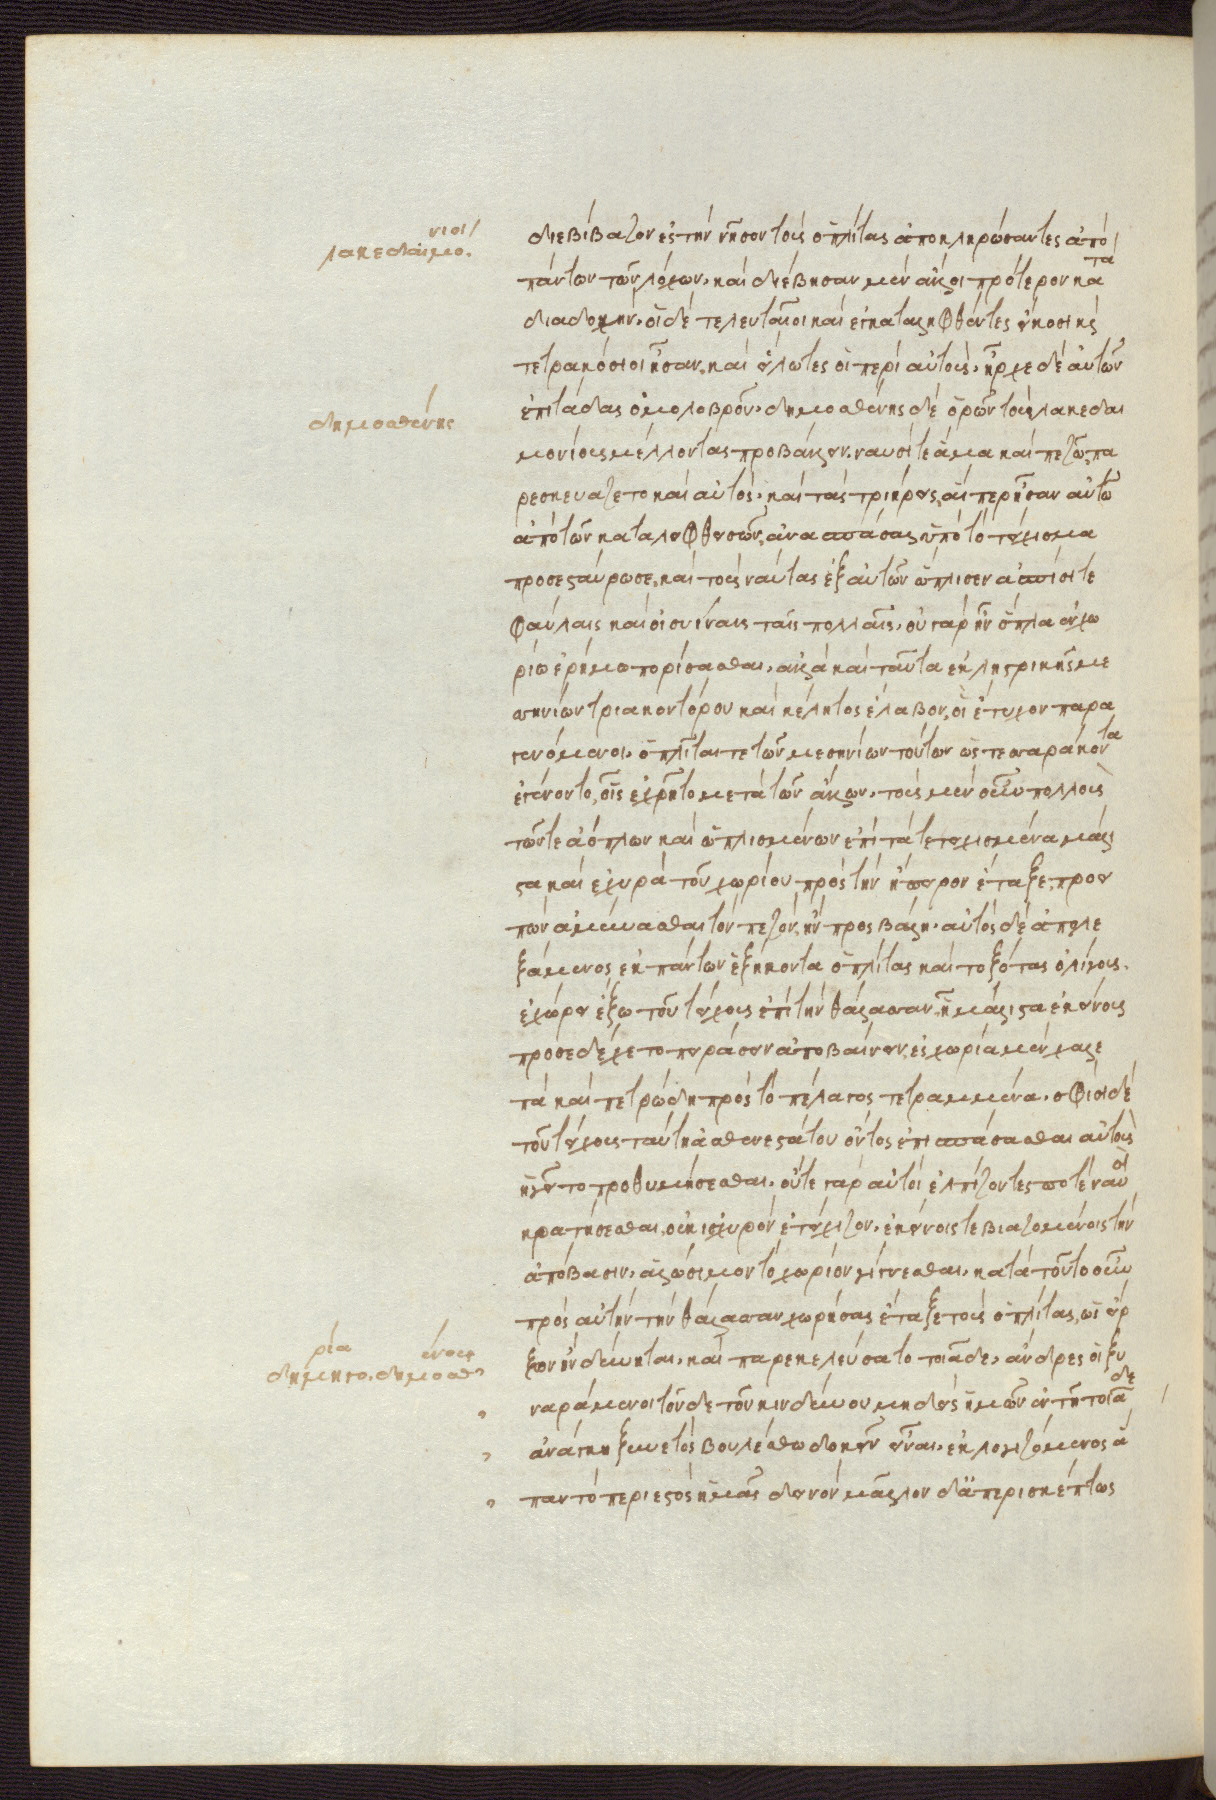 λακεδαιμό.νιοι
διεβίβαζον ἐς τὴν νῆσον τοὺς ὁπλίτας ἀποκληρώσαντες ἀπὸ
πάντων τῶν λόχων. καὶ διέβησαν μὲν ἄλλοι πρότερον κατὰ
διαδοχήν. οἱ δὲ τελευταῖοι καὶ ἐγκαταληφθέντες εἴκοσι κς
τετρακόσιοι ἦσαν. καὶ εἵλωτες οἱ περὶ αὐτούς. ἦρχε δὲ αὐτῶν
δημοσθένης
ἐπιτάδας ὁ μολοβροῦ. δημοσθένης δὲ ὁρῶν τοὺς λακεδαι
μονίους μέλλοντας προβάλλειν ναυσί τε ἅμα καὶ πεζῶ, πα
ρεσκευάζετο καὶ αὐτός. καὶ τὰς τριήρεις, αἵπερ ἦσαν αὐτῶ
ἀπὸ τῶν καταλειφθεισῶν, ἀνασπάσας ὑπὸ τὸ τείχισμα
προσεσταύρωσε. καὶ τοὺς ναύτας ἐξ αὐτῶν ὥπλισεν ἀσπίσι τε
φαύλαις καὶ οἰσυΐναις ταῖς πολλαῖς. οὐ γὰρ ἦν ὅπλα ἐν χω
ρίω ἐρήμω πορίσασθαι. ἀλλὰ καὶ ταῦτα ἐκ ληστρικῆς με
σηνίων τριακοντόρου καὶ κέλητος ἔλαβον, οἳ ἔτυχον παρα
γενόμενοι. ὁπλῖται τε τῶν μεσηνίων τούτων ὡς τεσσαράκοντα
ἐγένοντο, οἷς ἐχρῆτο μετὰ τῶν ἄλλων. τοὺς μὲν οὖν πολλοὺς
τῶν τε ἀόπλων καὶ ὡπλισμένων ἐπὶ τὰ τετειχισμένα μάλι
στα καὶ ἐχυρὰ τοῦ χωρίου πρὸς τὴν ἤπειρον ἔταξε, προει
πὼν ἀμύνασθαι τὸν πεζόν, ἢν προσβάλη. αὐτὸς δὲ ἀπολε
ξάμενος ἐκ πάντων ἑξήκοντα ὁπλίτας καὶ τοξότας ὀλίγους.
ἐχώρει ἔξω τοῦ τείχους ἐπὶ τὴν θάλασσαν, ἧ μάλιστα ἐκείνους
προσεδέχετο πειράσειν ἀποβαίνειν, ἐς χωρία μὲν χαλε
πὰ καὶ πετρώδη πρὸς τὸ πέλαγος τετραμμένα. σφίσι δὲ
τοῦ τείχους ταύτη ἀσθενεστάτου ὄντος ἐπισπάσασθαι αὐτοὺς
ἡγεῖτο προθυμήσεσθαι. οὔτε γὰρ αὐτοὶ ἐλπίζοντες ποτὲ ναυσὶ
κρατήσεσθαι, οὐκ ἰσχυρὸν ἐτείχιζον. ἐκείνοις τε βιαζομένοις τὴν
ἀπόβασιν, ἁλώσιμον τὸ χωρίον γίγνεσθαι. κατὰ τοῦτο οὖν
πρὸς αὐτὴν τὴν θάλασσαν χωρήσας ἔταξε τοὺς ὁπλίτας, ὡς εἴρ
δημηγο.ρία δημοσθ ένους
ξων ἢν δύνηται. καὶ παρεκελεύσατο τοιάδε. ἄνδρες οἱ ξυ
ναράμενοι τοῦδε τοῦ κινδύνου μηδεὶς ἡμῶν ἐν τῆ τοιᾶδε
ἀνάγκη ξυνετὸς βουλέσθω δοκεῖν εἶναι. ἐκλογιζόμενος ἅ
παν τὸ περιεστὸς ἡμᾶς δεινὸν μᾶλλον δὲ ἀπερισκέπτως